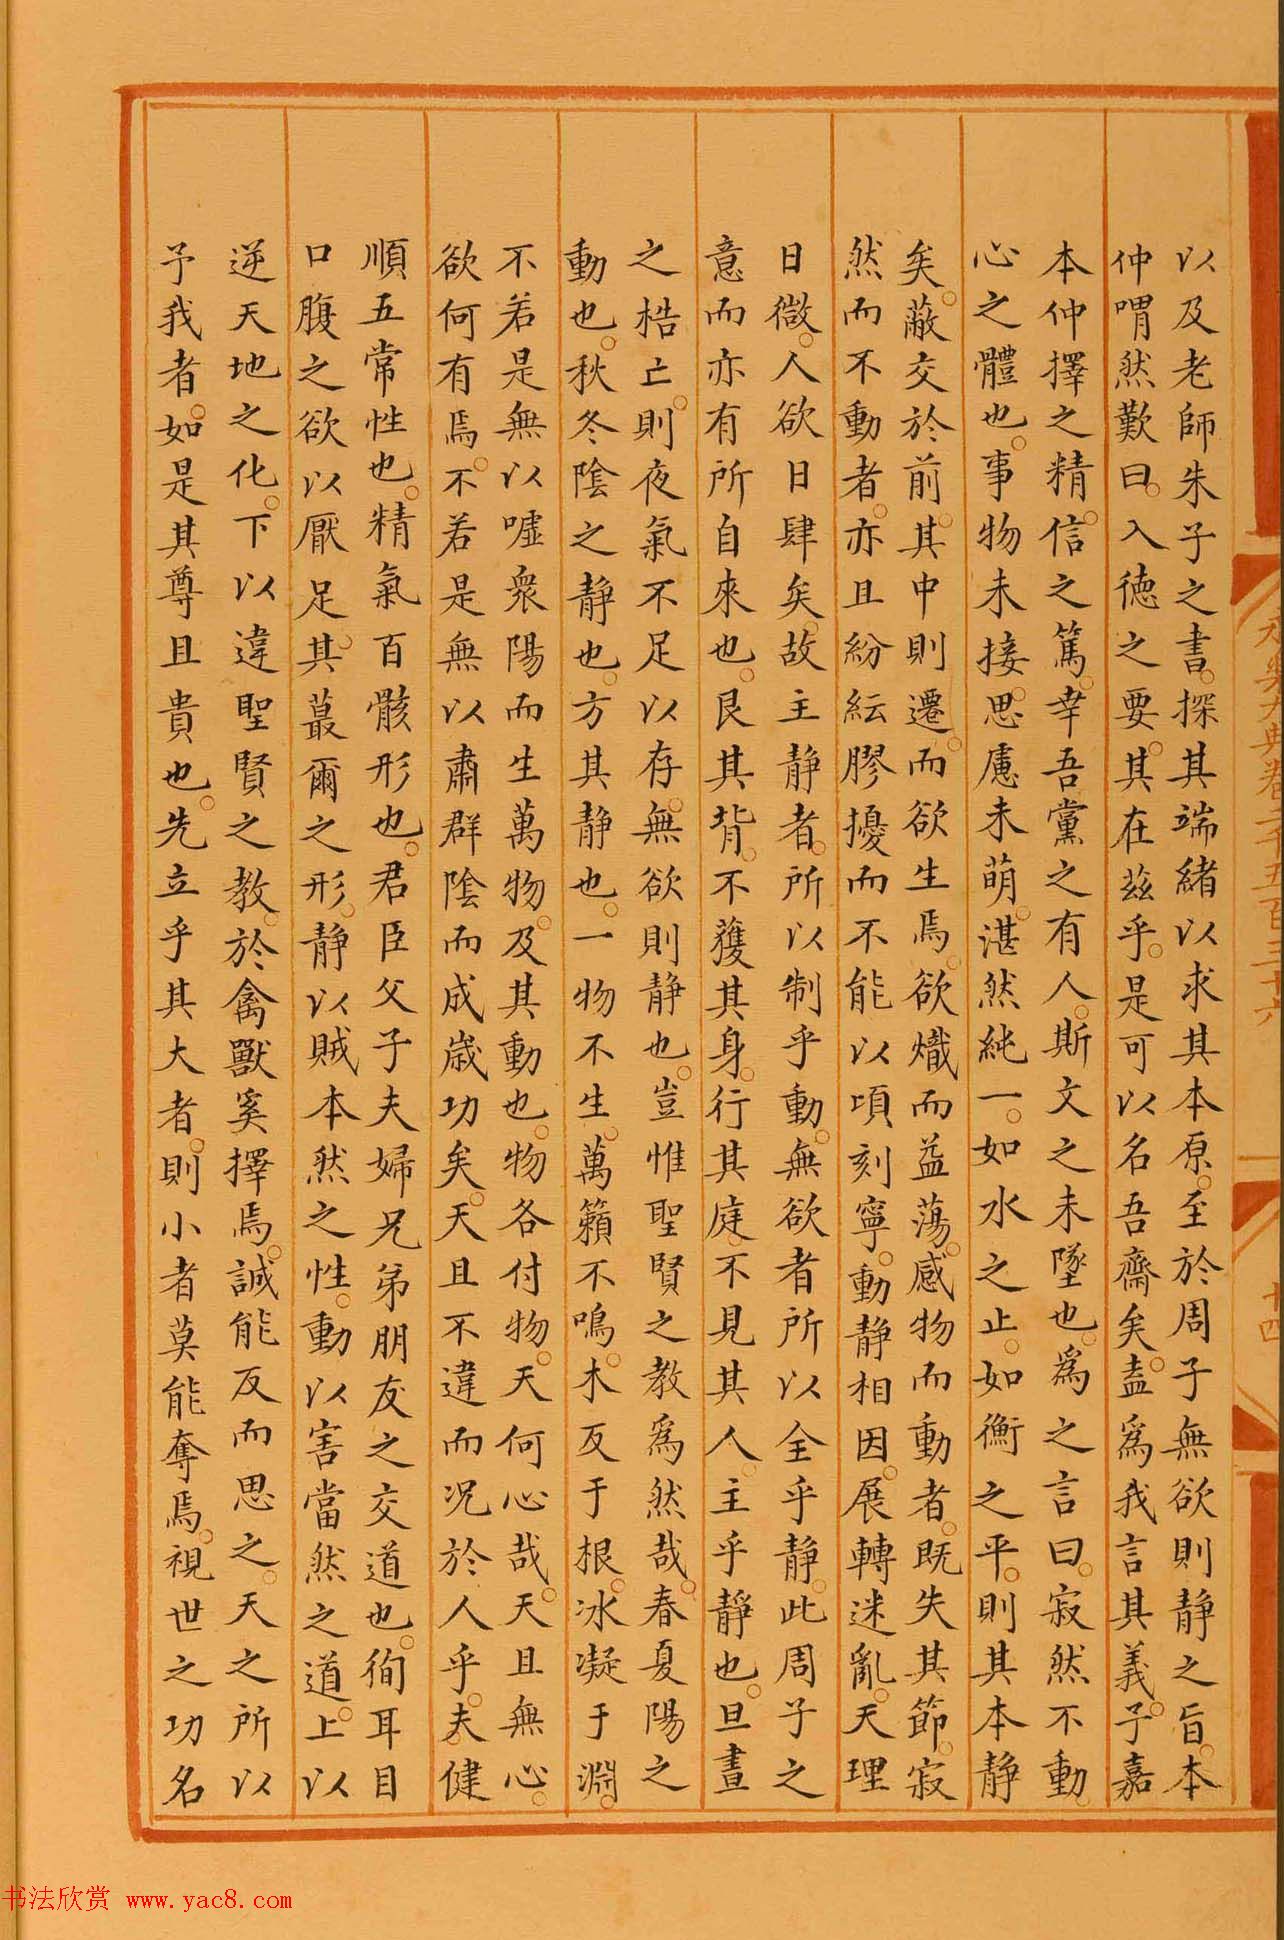 以及老師朱子之書。探其端緒以求其本原。至於周子無欲則靜之旨。本
仲喟然歎曰。入德之要。其在茲乎。是可以名吾齋矣。盍爲我言其義。予嘉
本仲擇之精。信之篤。幸吾黨之有人。斯文之未墜也。爲之言曰。寂然不動。
心之體也。事物未接。思慮未萌。湛然純一。如水之止。如衡之平。則其本靜
矣。蔽交於前。其中則遷。而欲生焉。欲熾而益蕩。感物而動者。既失其節。寂
然而不動者。亦且紛紜膠擾而不能以頃刻寧。動靜相因。展轉迷亂。天理
日微。人欲日肆矣。故主靜者。所以制乎動。無欲者所以全乎靜。此周子之
意而亦有所自來也。艮其背。不獲其身。行其庭。不見其人。主乎靜也。旦晝
之梏亡。則夜氣不足以存。無欲則靜也。豈惟聖賢之教爲然哉。春夏陽之
動也。秋冬陰之靜也。方其靜也。一物不生。萬籟不鳴。木反于根。冰凝于淵。
不若是無以噓衆陽而生萬物。及其動也。物各付物。天何心哉。天且無心。
欲何有焉。不若是無以肅群陰而成歲功矣。天且不違而况於人乎。夫健
順五常性也。精氣百骸形也。君臣父子夫婦兄弟朋友之交道也。徇耳目
口腹之欲以厭足其蕞爾之形。靜以賊本然之性。動以害當然之道。上以
逆天地之化。下以違聖賢之教。於禽獸奚擇焉。誠能反而思之。天之所以
予我者。如是其尊且貴也。先立乎其大者。則小者莫能奪焉。視世之功名
永樂大典卷二千五百三十六
十四
书法欣赏 www.yac8.com